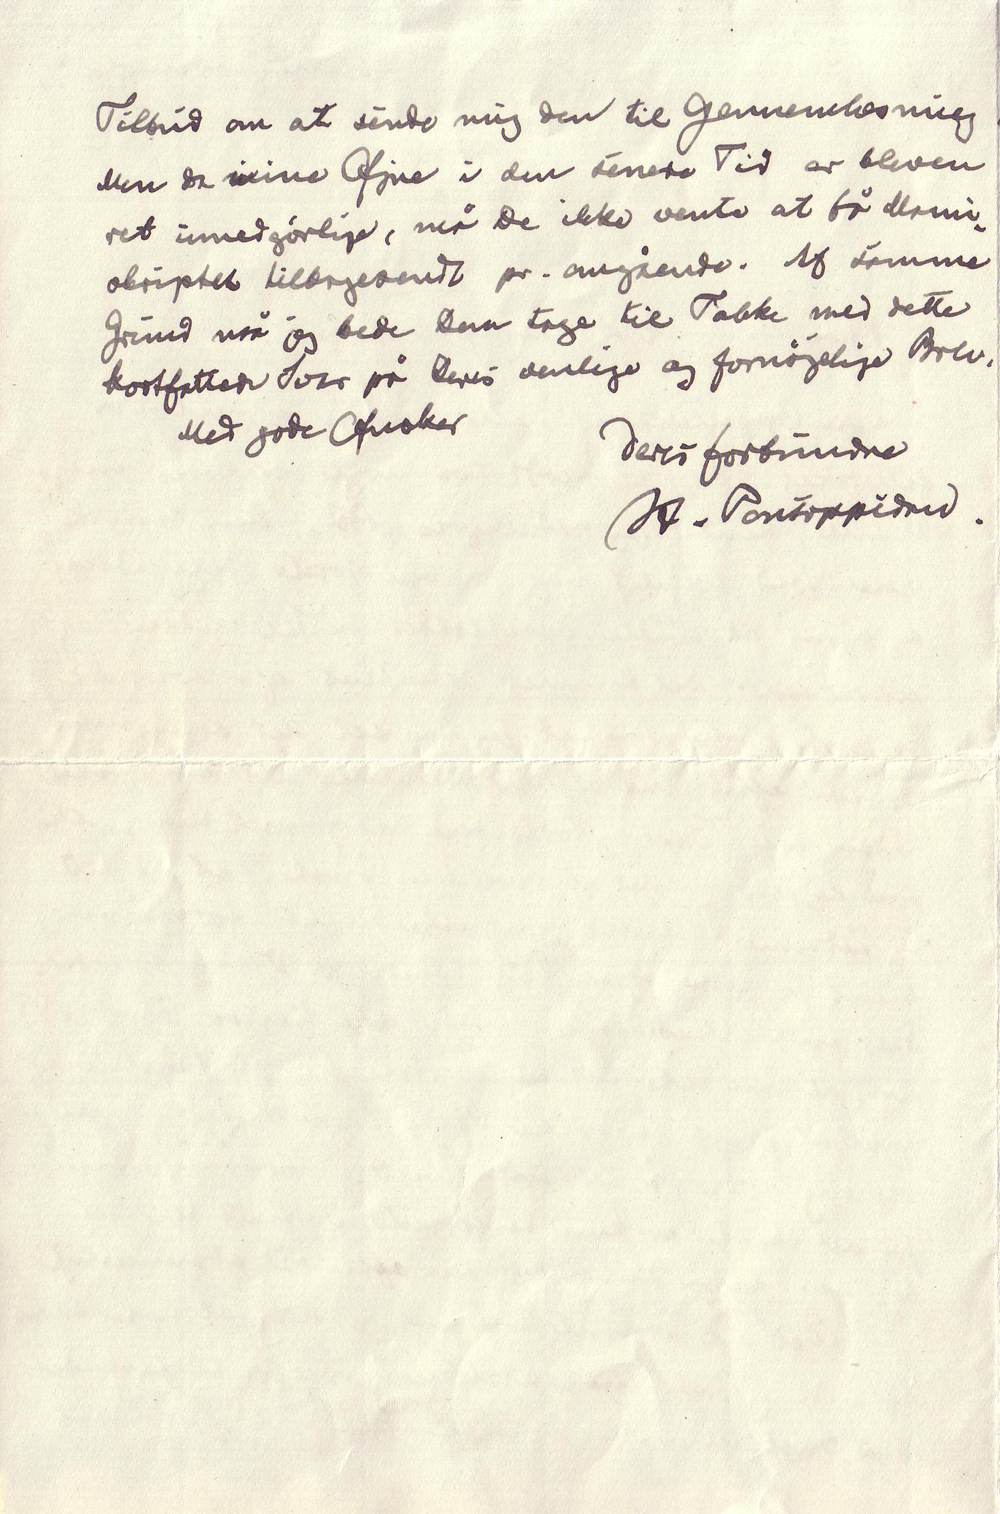 Tilbud om at sende mig den til Gennemlæsning.
Men da mine Øjne i den senere Tid er bleven
ret umedgørlige, må De ikke vente at få Manu-
skriptet tilbagesendt pr. omgående. Af samme
Grund må jeg bede Dem tage til Takke med dette
kortfattede Svar på Deres venlige og fornøjelige Brev.
Med gode Ønsker
Deres forbundne
H. Pontoppidan.